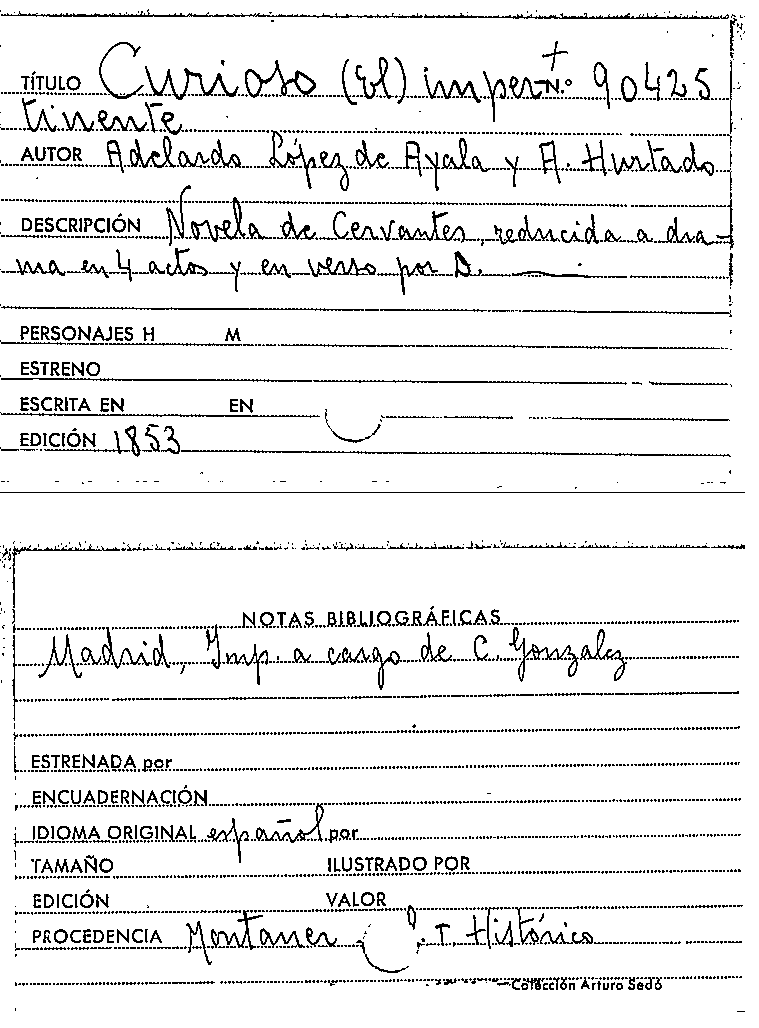 TÍTULO Curioso (El) imper- + N.º 90425
tinente
AUTOR Adelardo López de Ayala y A. Hurtado
DESCRIPCIÓN Novela de Cervantes, reducida a dra-
ma en 4 actos y en verso por D. ——.
PERSONAJES H M
ESTRENO
ESCRITA EN EN
EDICIÓN 1853
NOTAS BIBLIOGRÁFICAS
Madrid, Imp. a cargo de C. Gonzalez
ESTRENADA por
ENCUADERNACIÓN
IDIOMA ORIGINAL español por
TAMAÑO ILUSTRADO POR
EDICIÓN VALOR
PROCEDENCIA Montaner T. Histórico
Colección Arturo Sedó